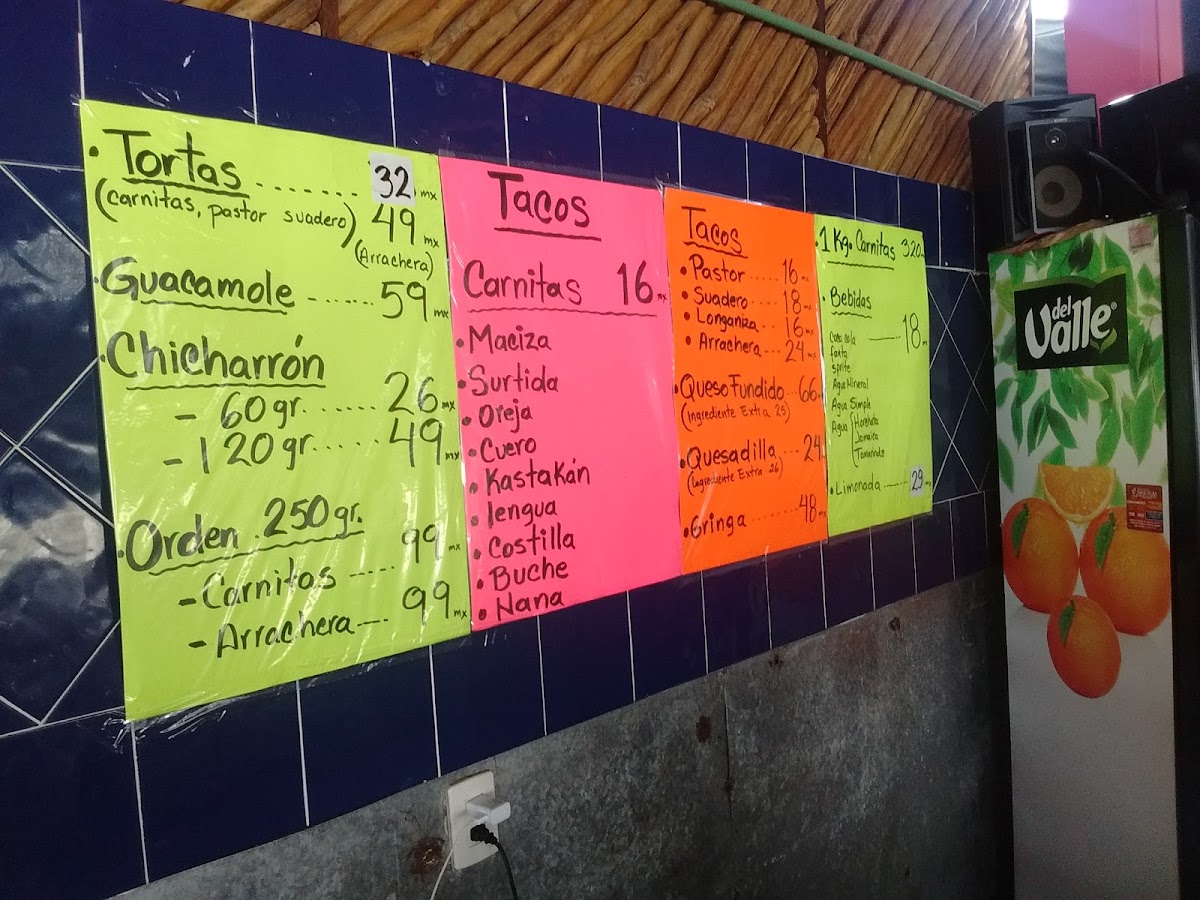 • Tortas ........ 32 mx
(carnitas, pastor suadero) 49 mx
(Arrachera)
• Guacamole ...... 59 mx
• Chicharrón
- 60 gr. ...... 26 mx
- 120 gr. ...... 49 mx
• Orden 250 gr.
- Carnitas ----- 99 mx
- Arrachera ---- 99 mx
Tacos
Carnitas 16 mx
• Maciza
• Surtida
• Oreja
• Cuero
• Kastakán
• lengua
• Costilla
• Buche
• Nana
Tacos
• Pastor .... 16 mx
• Suadero ---- 18 mx
• Longaniza --- 16 mx
• Arrachera --- 24 mx
• Queso Fundido 66
(Ingrediente Extra 25)
• Quesadilla .... 24
(Ingrediente Extra 26)
• Gringa ....... 48 mx
• 1 Kg. Carnitas 320
• Bebidas
Coca cola ------ 18
fanta
sprite
Agua Mineral
Agua Simple
Agua { Horchata
Jamaica
Tamarindo
• Limonada ------ 29
del
Valle